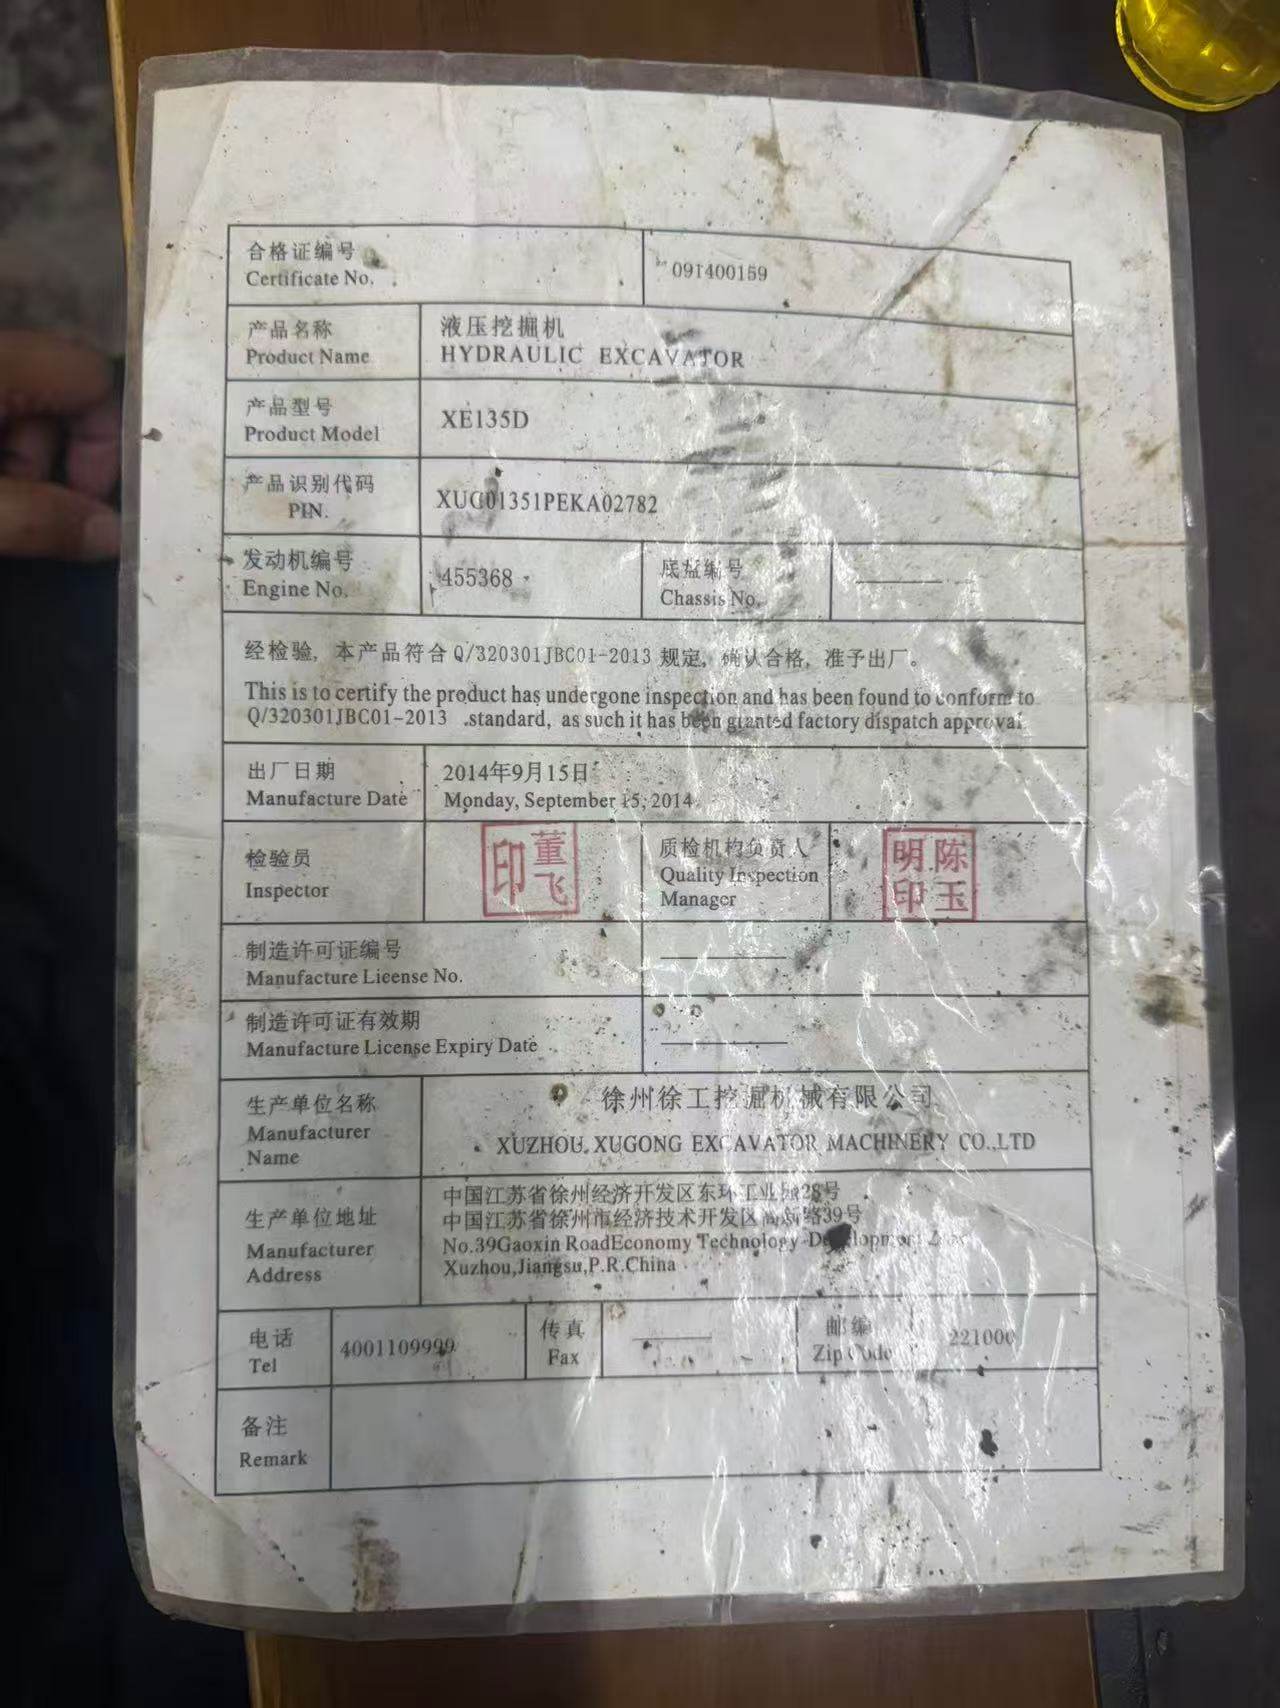 合格证编号
Certificate No.
091400159
产品名称
Product Name
液压挖掘机
HYDRAULIC EXCAVATOR
产品型号
Product Model
XE135D
产品识别代码
PIN.
XUG01351PEKA02782
发动机编号
Engine No.
455368
底盘编号
Chassis No.
经检验, 本产品符合 Q/320301JBC01-2013 规定, 确认合格, 准予出厂。
This is to certify the product has undergone inspection and has been found to conform to
Q/320301JBC01-2013 .standard, as such it has been granted factory dispatch approval
出厂日期
Manufacture Date
2014年9月15日
Monday, September 15, 2014
检验员
Inspector
董飞印
质检机构负责人
Quality Inspection
Manager
陈玉明印
制造许可证编号
Manufacture License No.
制造许可证有效期
Manufacture License Expiry Date
生产单位名称
Manufacturer
Name
徐州徐工挖掘机械有限公司
XUZHOU XUGONG EXCAVATOR MACHINERY CO.,LTD
生产单位地址
Manufacturer
Address
中国江苏省徐州经济开发区东环工业园28号
中国江苏省徐州市经济技术开发区高新路39号
No.39Gaoxin RoadEconomy Technology Development
Xuzhou,Jiangsu,P.R.China
电话
Tel
4001109999
传真
Fax
邮编
Zip Code
221000
备注
Remark